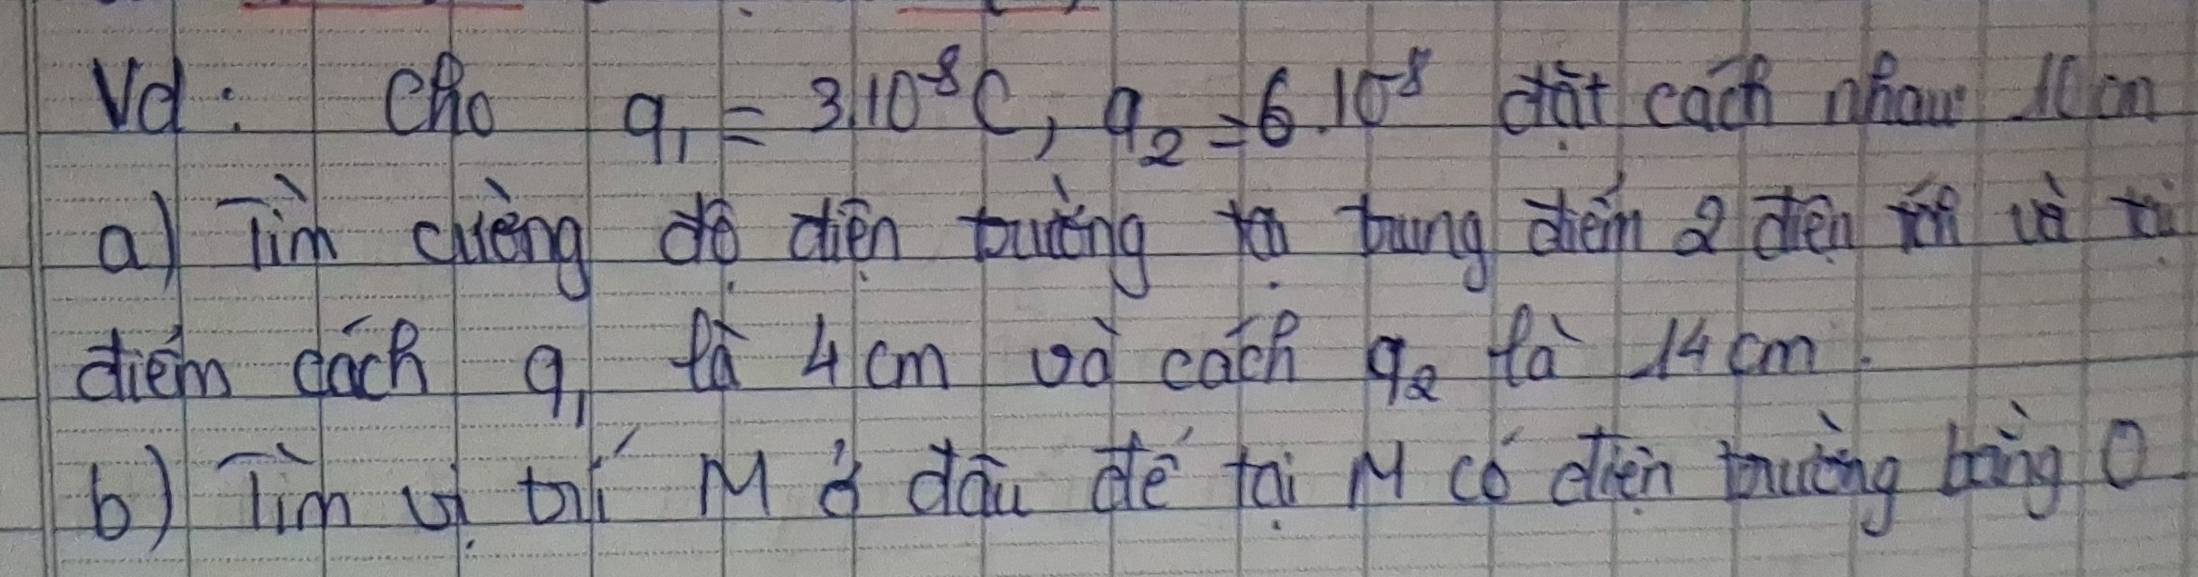 Vd: Cho q₁ = 3.10⁻⁸C, q₂ = 6.10⁻⁸ đặt cách nhau 10cm
a) Tìm cường độ điện trường tại trung điểm 2 điện tích và tại
điểm cách q₁ là 4cm và cách q₂ là 14cm.
b) Tìm vị trí M ở đâu để tại M có điện trường bằng 0